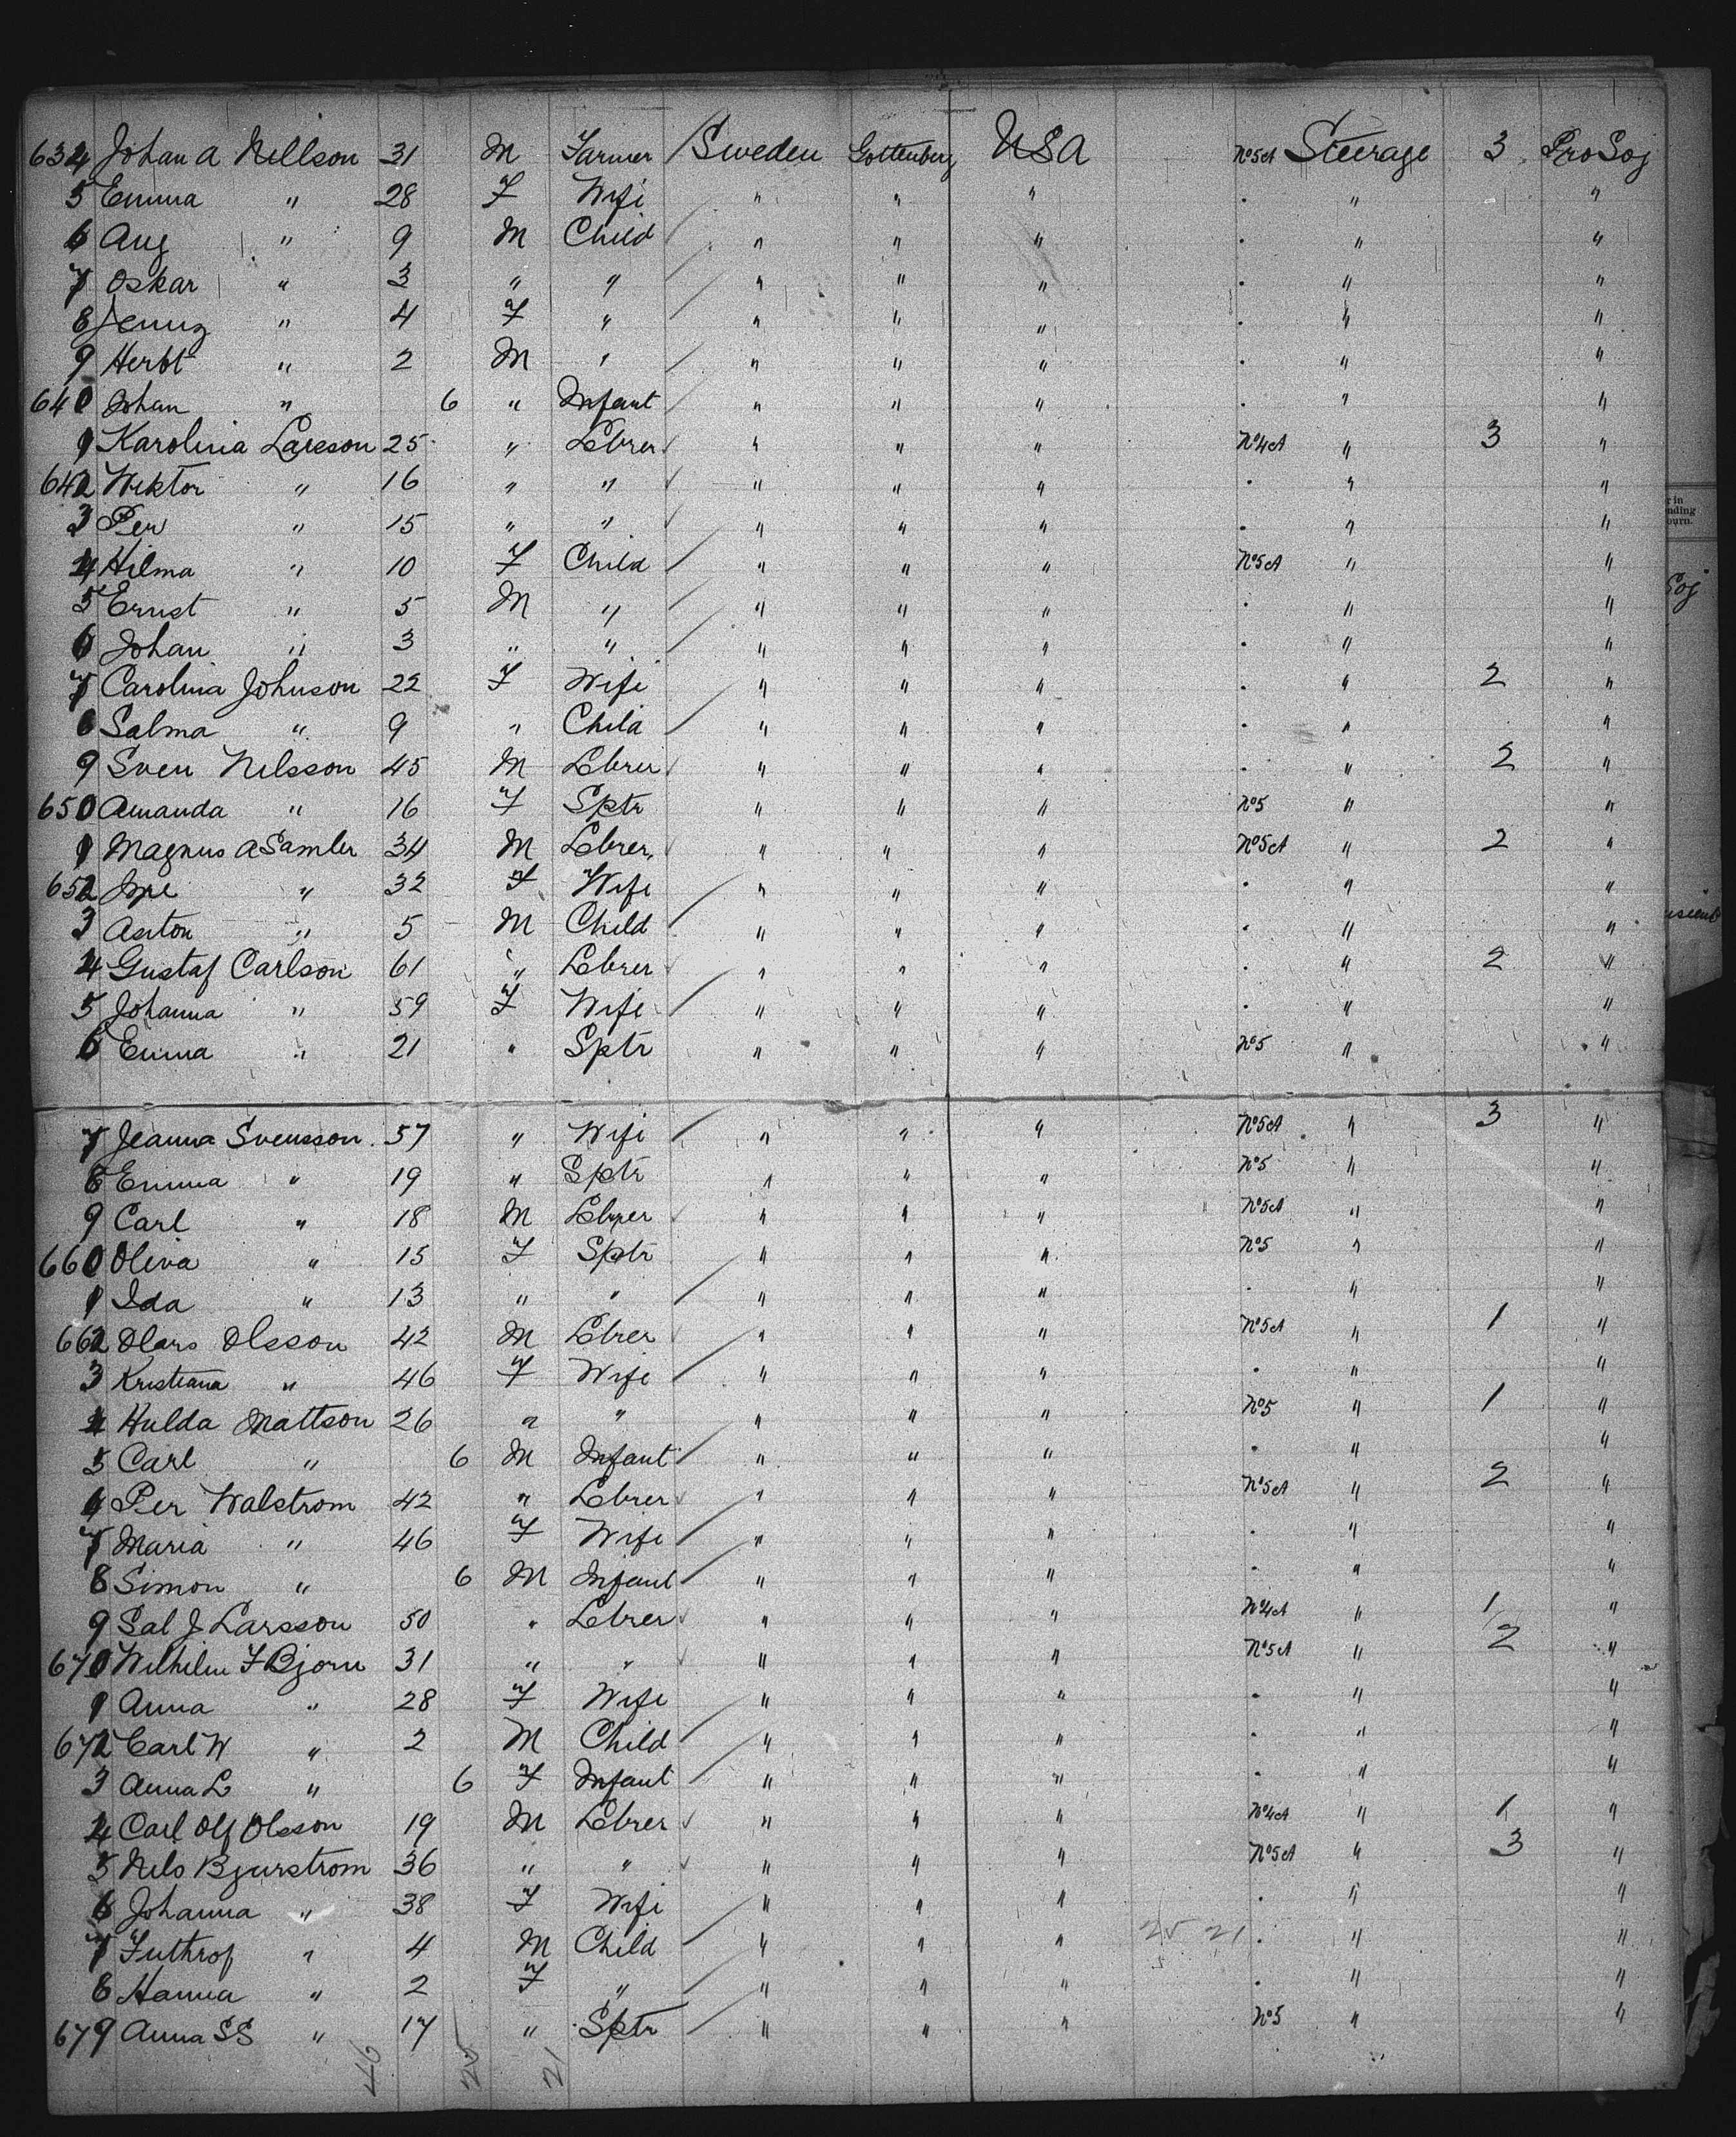 634 Johan A Nellson 31 M Farmer Sweden Gottenberg USA No5A Steerage 3 Pro Soj
5 Emma " 28 F Wife " " " . " "
6 Aug " 9 M Child " " " . " "
7 Oskar " 3 " " " " " . " "
8 Jenny " 4 F " " " " . " "
9 Herbt " 2 M " " " " . " "
640 Johan " 6 " Infant " " " . " "
1 Karolina Larsson 25 " Lebrer " " " No4A " 3 "
642 Wiktor " 16 " " " " " . " "
3 Per " 15 " " " " " . " "
4 Hilma " 10 F Child " " " No5A " "
5 Ernst " 5 M " " " " . " "
6 Johan " 3 " " " " " . " "
7 Carolina Johnson 22 F Wife " " " . " 2 "
8 Salma " 9 " Child " " " . " "
9 Sven Nelsson 45 M Lebrer " " " . " 2 "
650 Amanda " 16 F Sptr " " " No5 " "
1 Magnus A Samler 34 M Lebrer " " " No5A " 2 "
652 " 32 F Wife " " " . " "
3 Aston " 5 M Child " " " . " "
4 Gustaf Carlson 61 " Lebrer " " " . " 2 "
5 Johanna " 59 F Wife " " " . " "
6 Emma " 21 " Sptr " " " No5 " "
7 Jeanna Svensson 57 " Wife " " " No5A " 3 "
8 Emma " 19 " Sptr " " " No5 " "
9 Carl " 18 M Lebrer " " " No5A " "
660 Oliva " 15 F Sptr " " " No5 " "
1 Ida " 13 " " " " " . " "
662 Olars Olsson 42 M Lebrer " " " No5A " 1 "
3 Kristiana " 46 F Wife " " " . " "
4 Hulda Mattson 26 " " " " " No5 " 1 "
5 Carl " 6 M Infant " " " . " "
6 Per Walstrom 42 " Lebrer " " " No5A " 2 "
7 Maria " 46 F Wife " " " . " "
8 Simon " 6 M Infant " " " . " "
9 Sal J Larsson 50 " Lebrer " " " No4A " 1 "
670 Wilhelm F Bjorn 31 " " " " " No5A " 2 "
1 Anna " 28 F Wife " " " . " "
672 Carl W " 2 M Child " " " . " "
3 Anna L " 6 F Infant " " " . " "
4 Carl Olf Olsson 19 M Lebrer " " " No4A " 1 "
5 Nels Bjurstrom 36 " " " " " No5A " 3 "
6 Johanna " 38 F Wife " " " . " "
7 Futhrof " 4 M Child " " " 25 21 . " "
8 Hanna " 2 F " " " " . " "
679 Anna SS " 17 " Sptr " " " No5 " "
46 25 21
r in
nding
ourn.
Soj